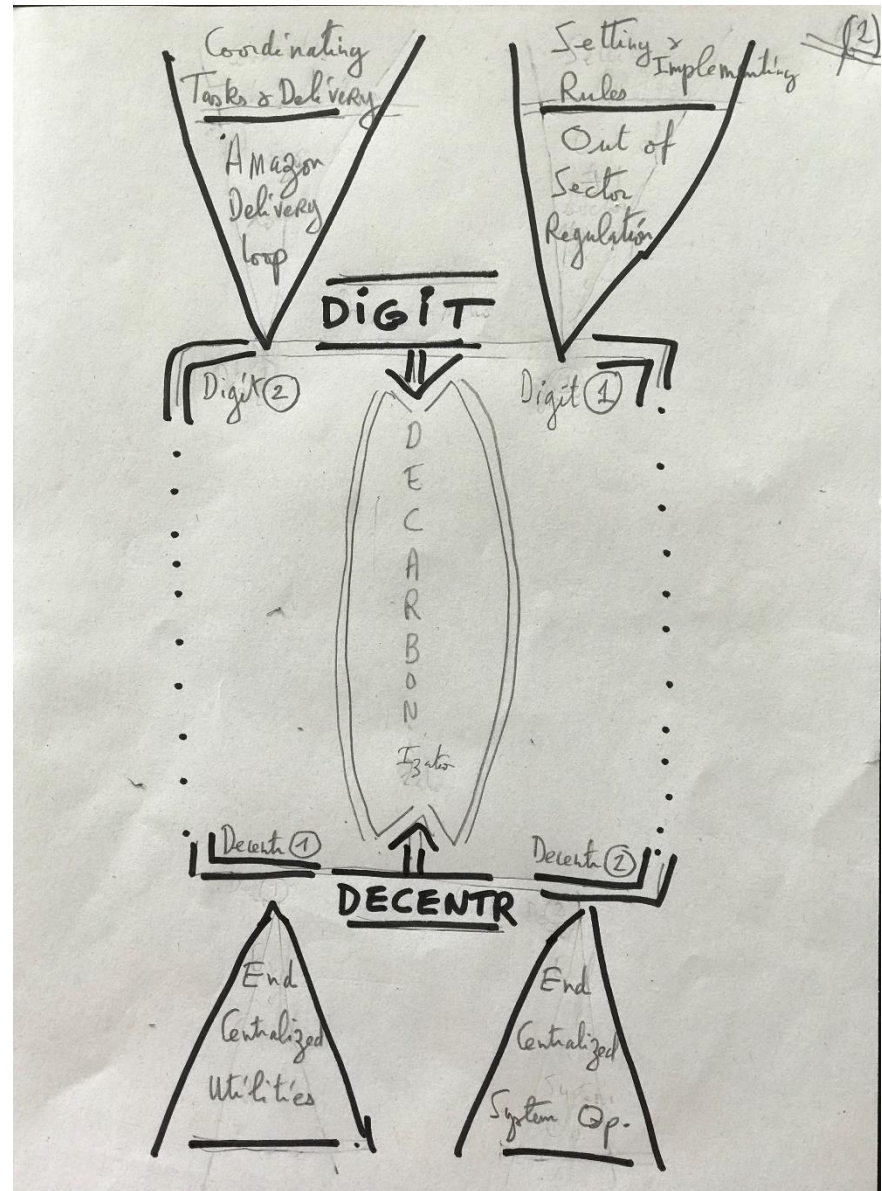 (2)
Coordinating
Tasks & Delivery
Amazon
Delivery
Loop
Setting &
Implementing
Rules
Out of
Sector
Regulation
DiGiT
Digit ②
Digit ①
D
E
C
A
R
B
O
N
Ization
Decentr ①
Decentr ②
DECENTR
End
Centralized
Utilities
End
Centralized
System Op.